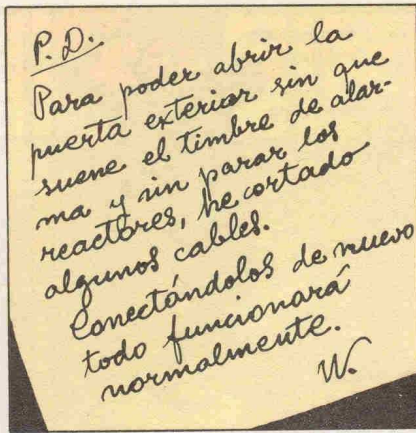 P.D.
Para poder abrir la
puerta exterior sin que
suene el timbre de alar-
ma y sin parar los
reactores, he cortado
algunos cables.
Conectándolos de nuevo
todo funcionará
normalmente.
W.